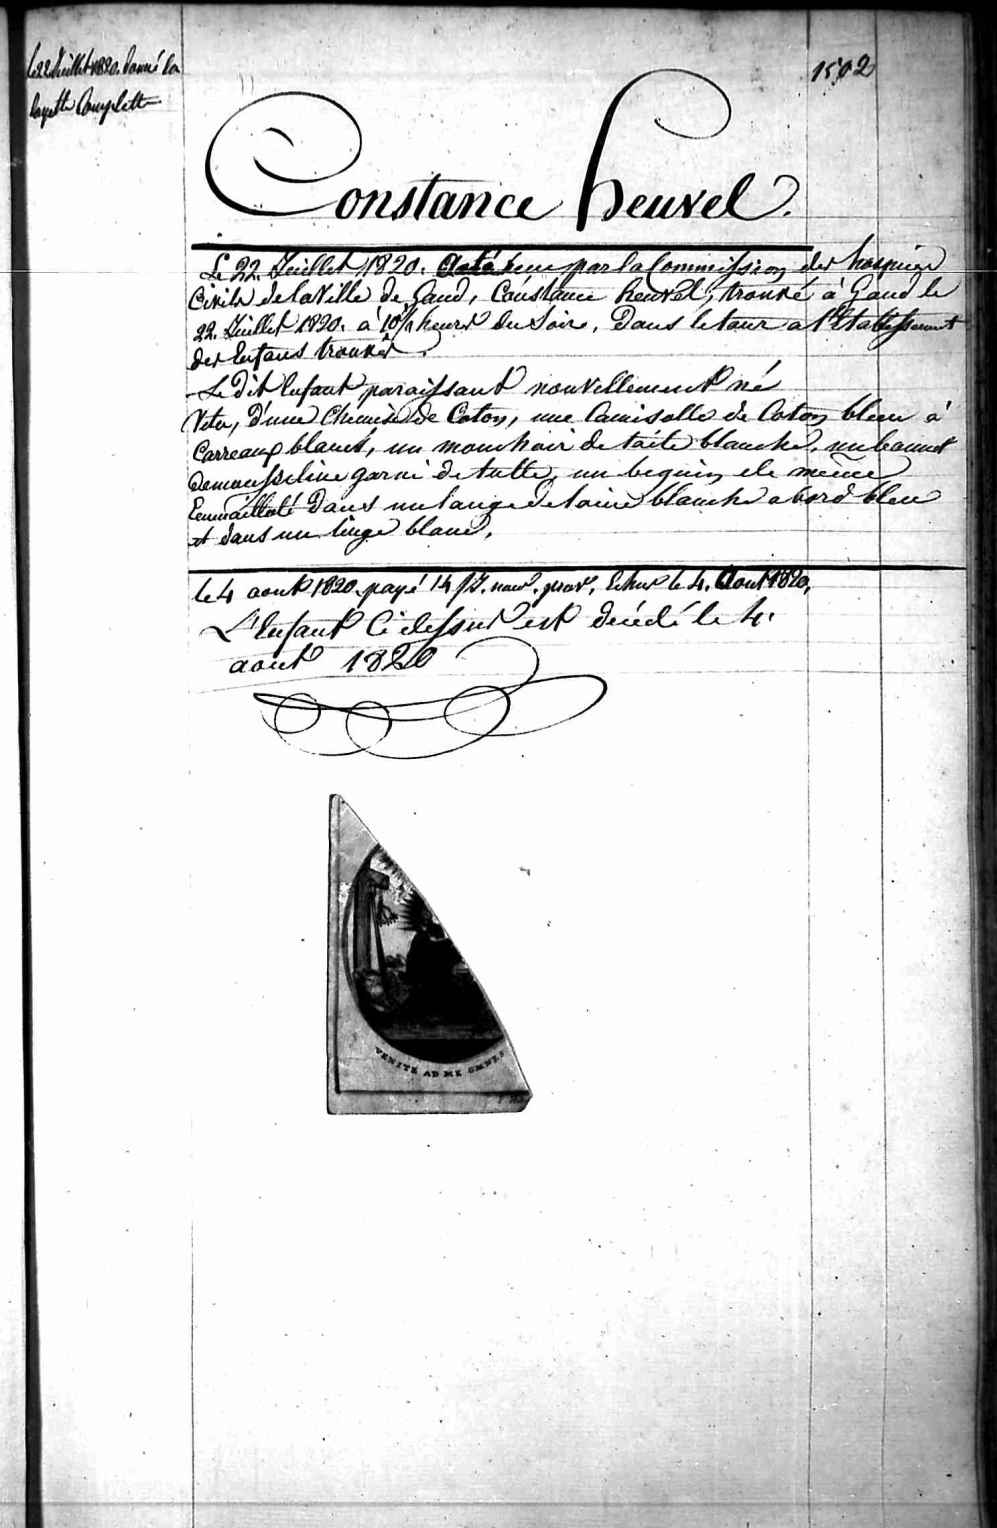 Le 22 Juillet 1820. donné la
layette Complette
1592
Constance heuvel.
Le 22. Juillet 1820. a été reçu par la Commission des hospices
Civils de la Ville de Gand, Constance heuvel, trouvé à Gand le
22. Juillet 1820. à 10 heures du Soir, Dans le tour a l'Etablissement
des Enfans trouvés.
Le Dit Enfant paraissant nouvellement né
Vetu, d'une Chemise de Coton, une Camisolle de Coton bleu à
Carreaux blancs, un mouchoir de toile blanche, un bonnet
de mousseline garni de tulle, un beguin de même
Emmailloté Dans un lange de laine blanche a bord bleu
et dans un linge blanc.
le 4 aout 1820. payé 14 Echus le 4. Aout 1820.
L'Enfant Ci dessus est décédé le 4.
aout 1820
VENITE AD ME OMNES